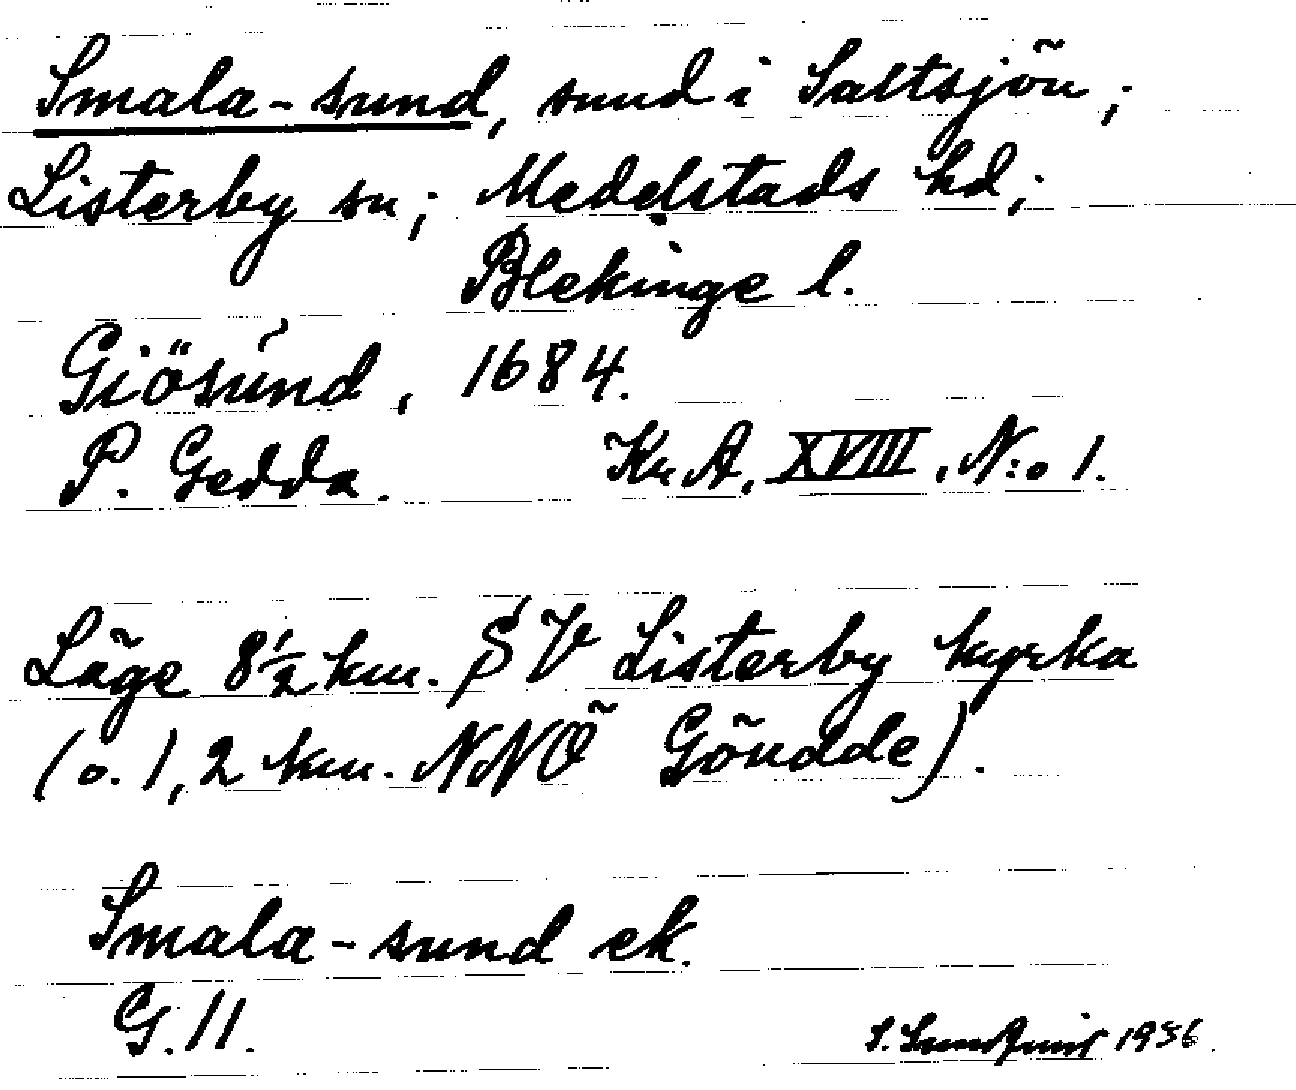 Smala-sund, sund i Saltsjön;
Listerby sn; Medelstads hd;
Blekinge l.
Giösund, 1684.
P. Gedda. Kr. A. XVIII, N:o 1.
Läge 8½ km. SV Listerby kyrka
(o. 1,2 km. NNÖ Göudde).
Smala-sund ek.
G. 11.
S. Sundquist 1956.